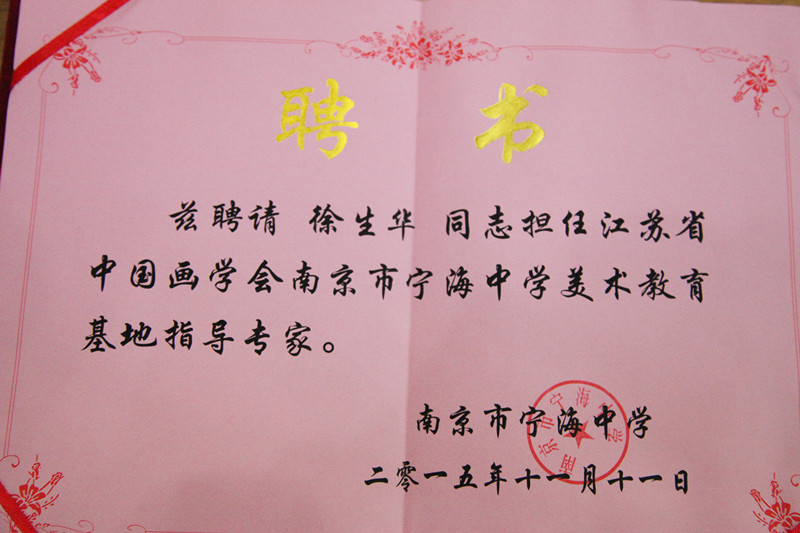 聘书
兹聘请 徐生华 同志担任江苏省
中国画学会南京市宁海中学美术教育
基地指导专家。
南京市宁海中学
二零一五年十一月十一日
南京市宁海中学